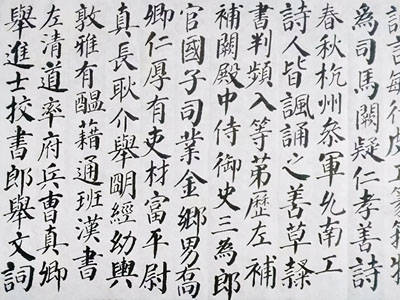 為司馬闕疑仁孝善詩
春秋杭州參軍允南工
詩人皆諷誦之善草隸
書判頻入等苐歷左補
補闕殿中侍御史三為郎
官國子司業金鄉男喬
卿仁厚有吏材富平尉
真長耿介舉明經幼輿
敦雅有醞藉通班漢書
左清道率府兵曹真卿
舉進士校書郎舉文詞